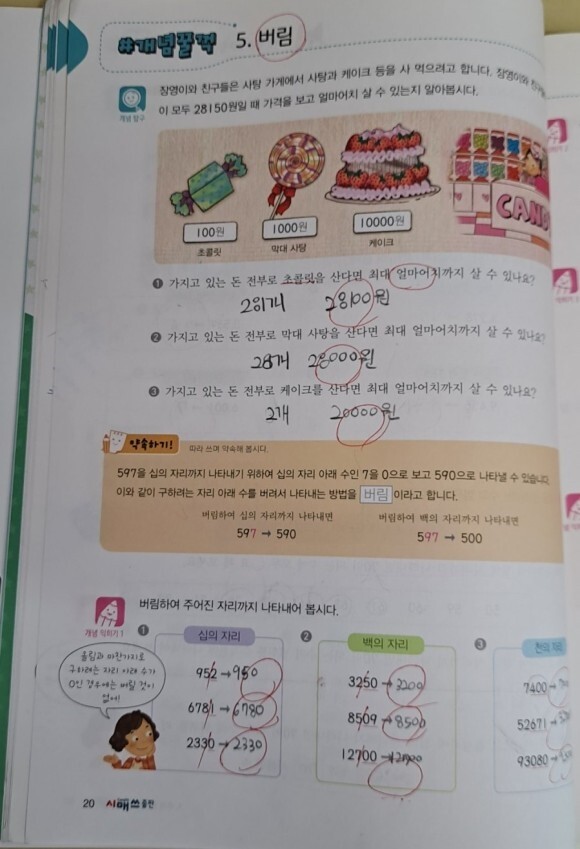 #개념꿀꺽 5. 버림
개념 탐구
장영이와 친구들은 사탕 가게에서 사탕과 케이크 등을 사 먹으려고 합니다. 장영이와
이 모두 28150원일 때 가격을 보고 얼마어치 살 수 있는지 알아봅시다.
100원 1000원 10000원
초콜릿 막대 사탕 케이크
❶ 가지고 있는 돈 전부로 초콜릿을 산다면 최대 얼마어치까지 살 수 있나요?
281개 28100원
❷ 가지고 있는 돈 전부로 막대 사탕을 산다면 최대 얼마어치까지 살 수 있나요?
28개 28000원
❸ 가지고 있는 돈 전부로 케이크를 산다면 최대 얼마어치까지 살 수 있나요?
2개 20000원
약속하기! 따라 쓰며 약속해 봅시다.
597을 십의 자리까지 나타내기 위하여 십의 자리 아래 수인 7을 0으로 보고 590으로 나타낼 수 있습니다.
이와 같이 구하려는 자리 아래 수를 버려서 나타내는 방법을 버림 이라고 합니다.
버림하여 십의 자리까지 나타내면 버림하여 백의 자리까지 나타내면
597 → 590 597 → 500
개념 익히기 1
버림하여 주어진 자리까지 나타내어 봅시다.
❶ 십의 자리 ❷ 백의 자리 ❸ 천의 자리
올림과 마찬가지로
구하려는 자리 아래 수가
0인 경우에는 버릴 것이
없어!
952 → 950 3250 → 3200 7400 →
6781 → 6780 8509 → 8500 52671 →
2330 → 2330 12700 → 12700 93080 →
20 시매쓰출판